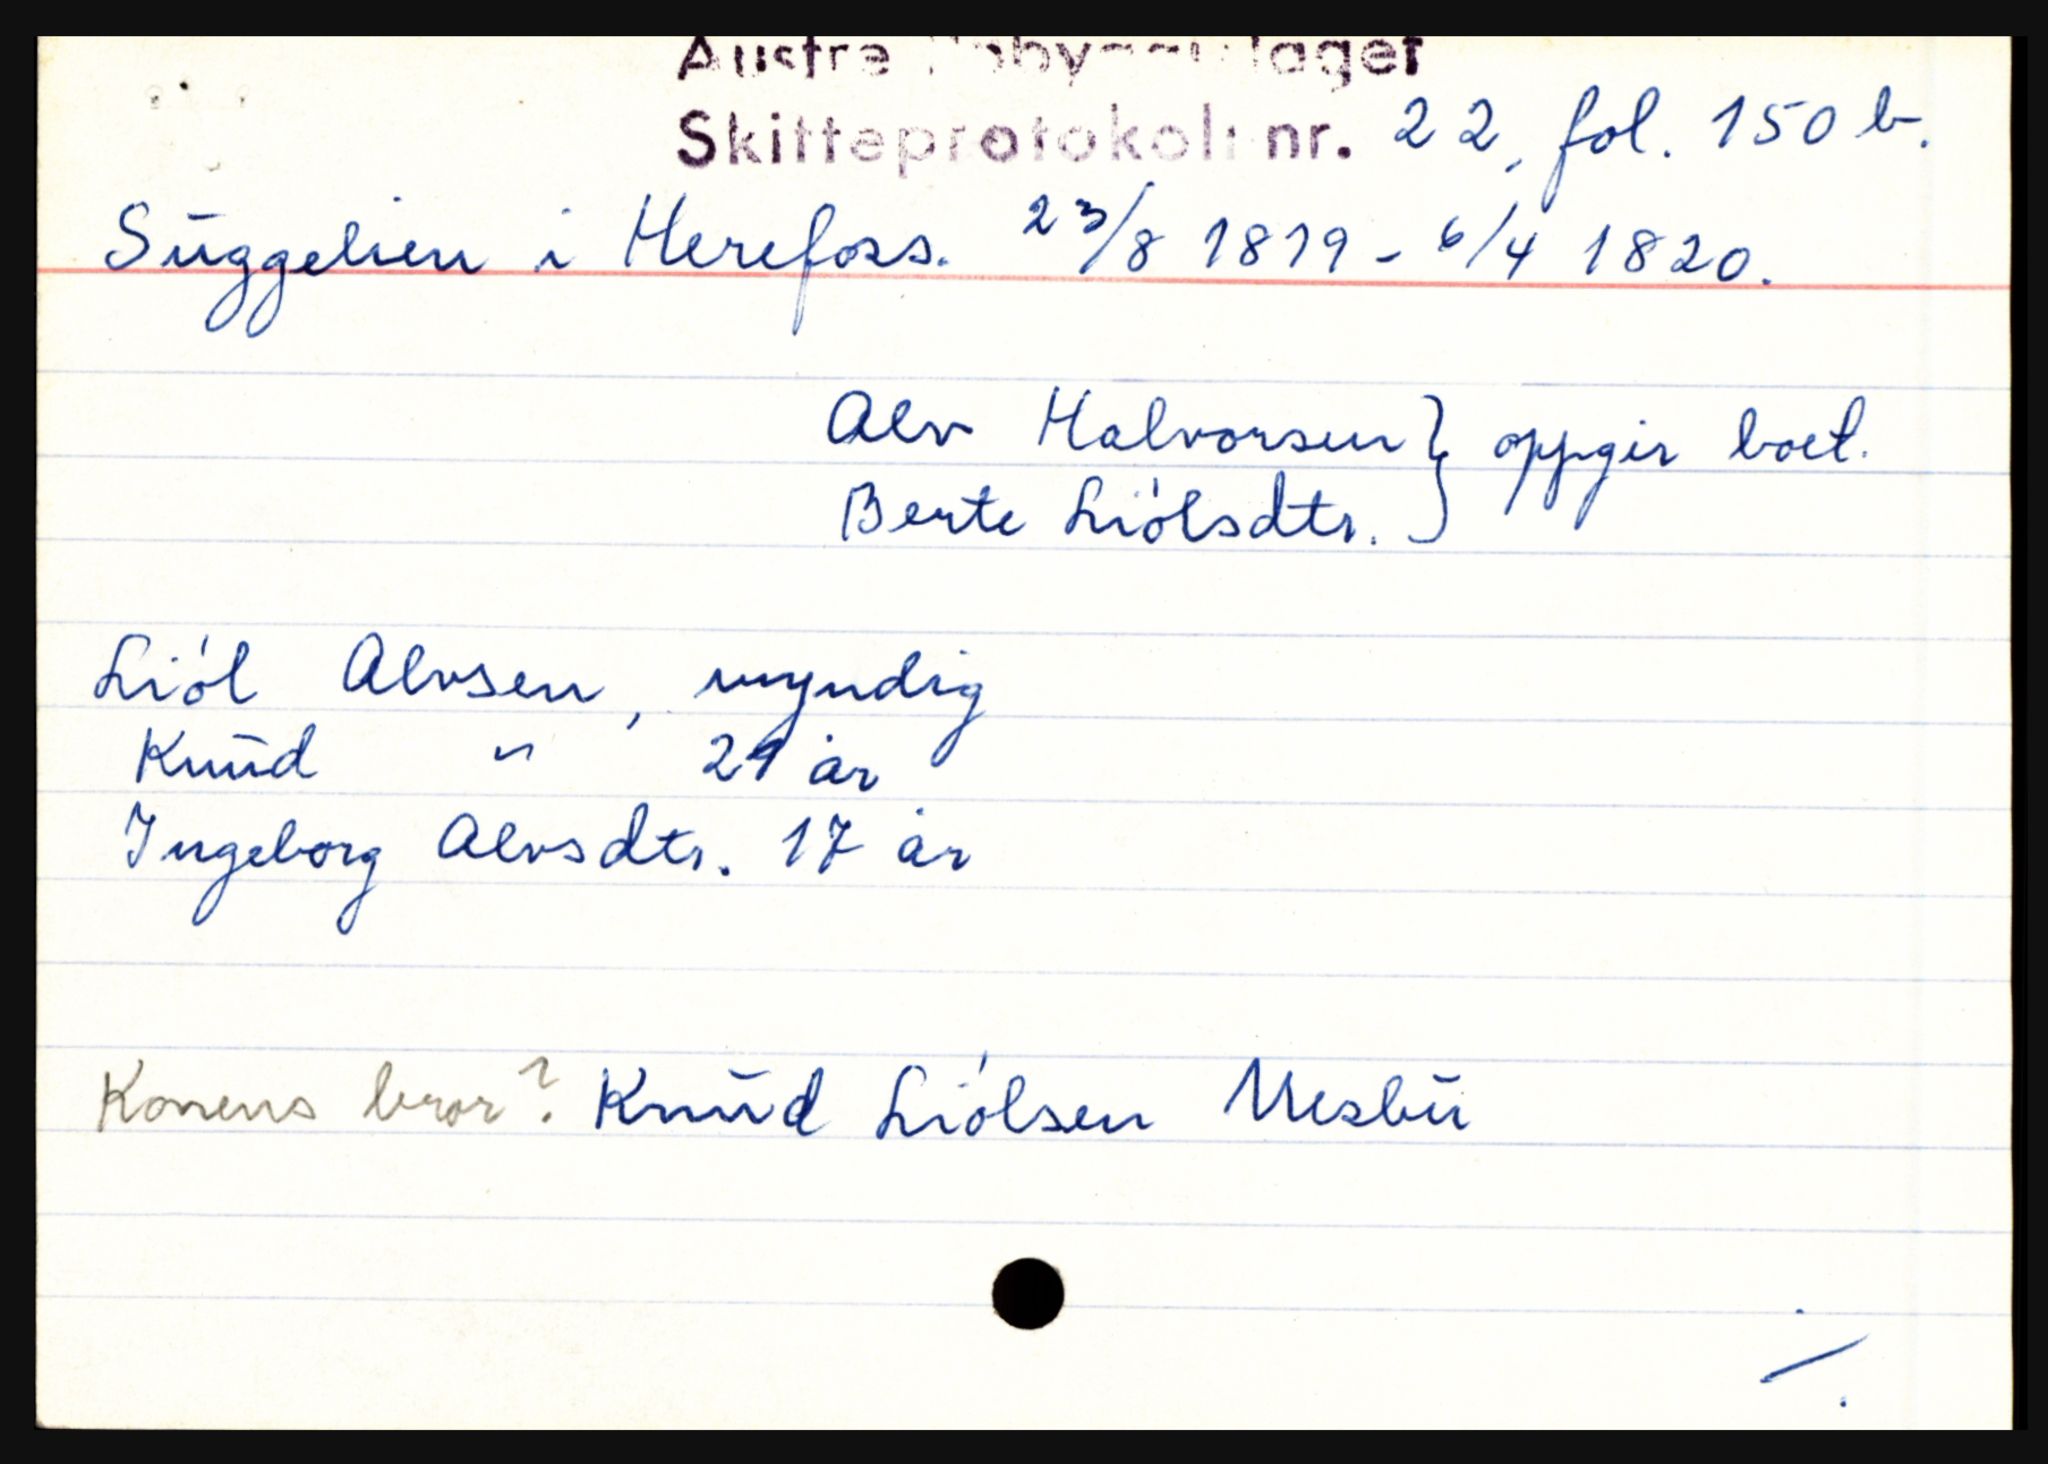 Austre lager
Skifteprotokoll nr. 22, fol. 150 b.
Suggelien i Herefoss. 23/8 1819 - 6/4 1820.
Alv Halvorsen } oppgir boet.
Berte Liólsdtr.
Liól Alvsen, myndig
Knud " 21 år
Ingeborg Alvsdtr. 17 år
Konens bror? Knud Liólsen Mesbu